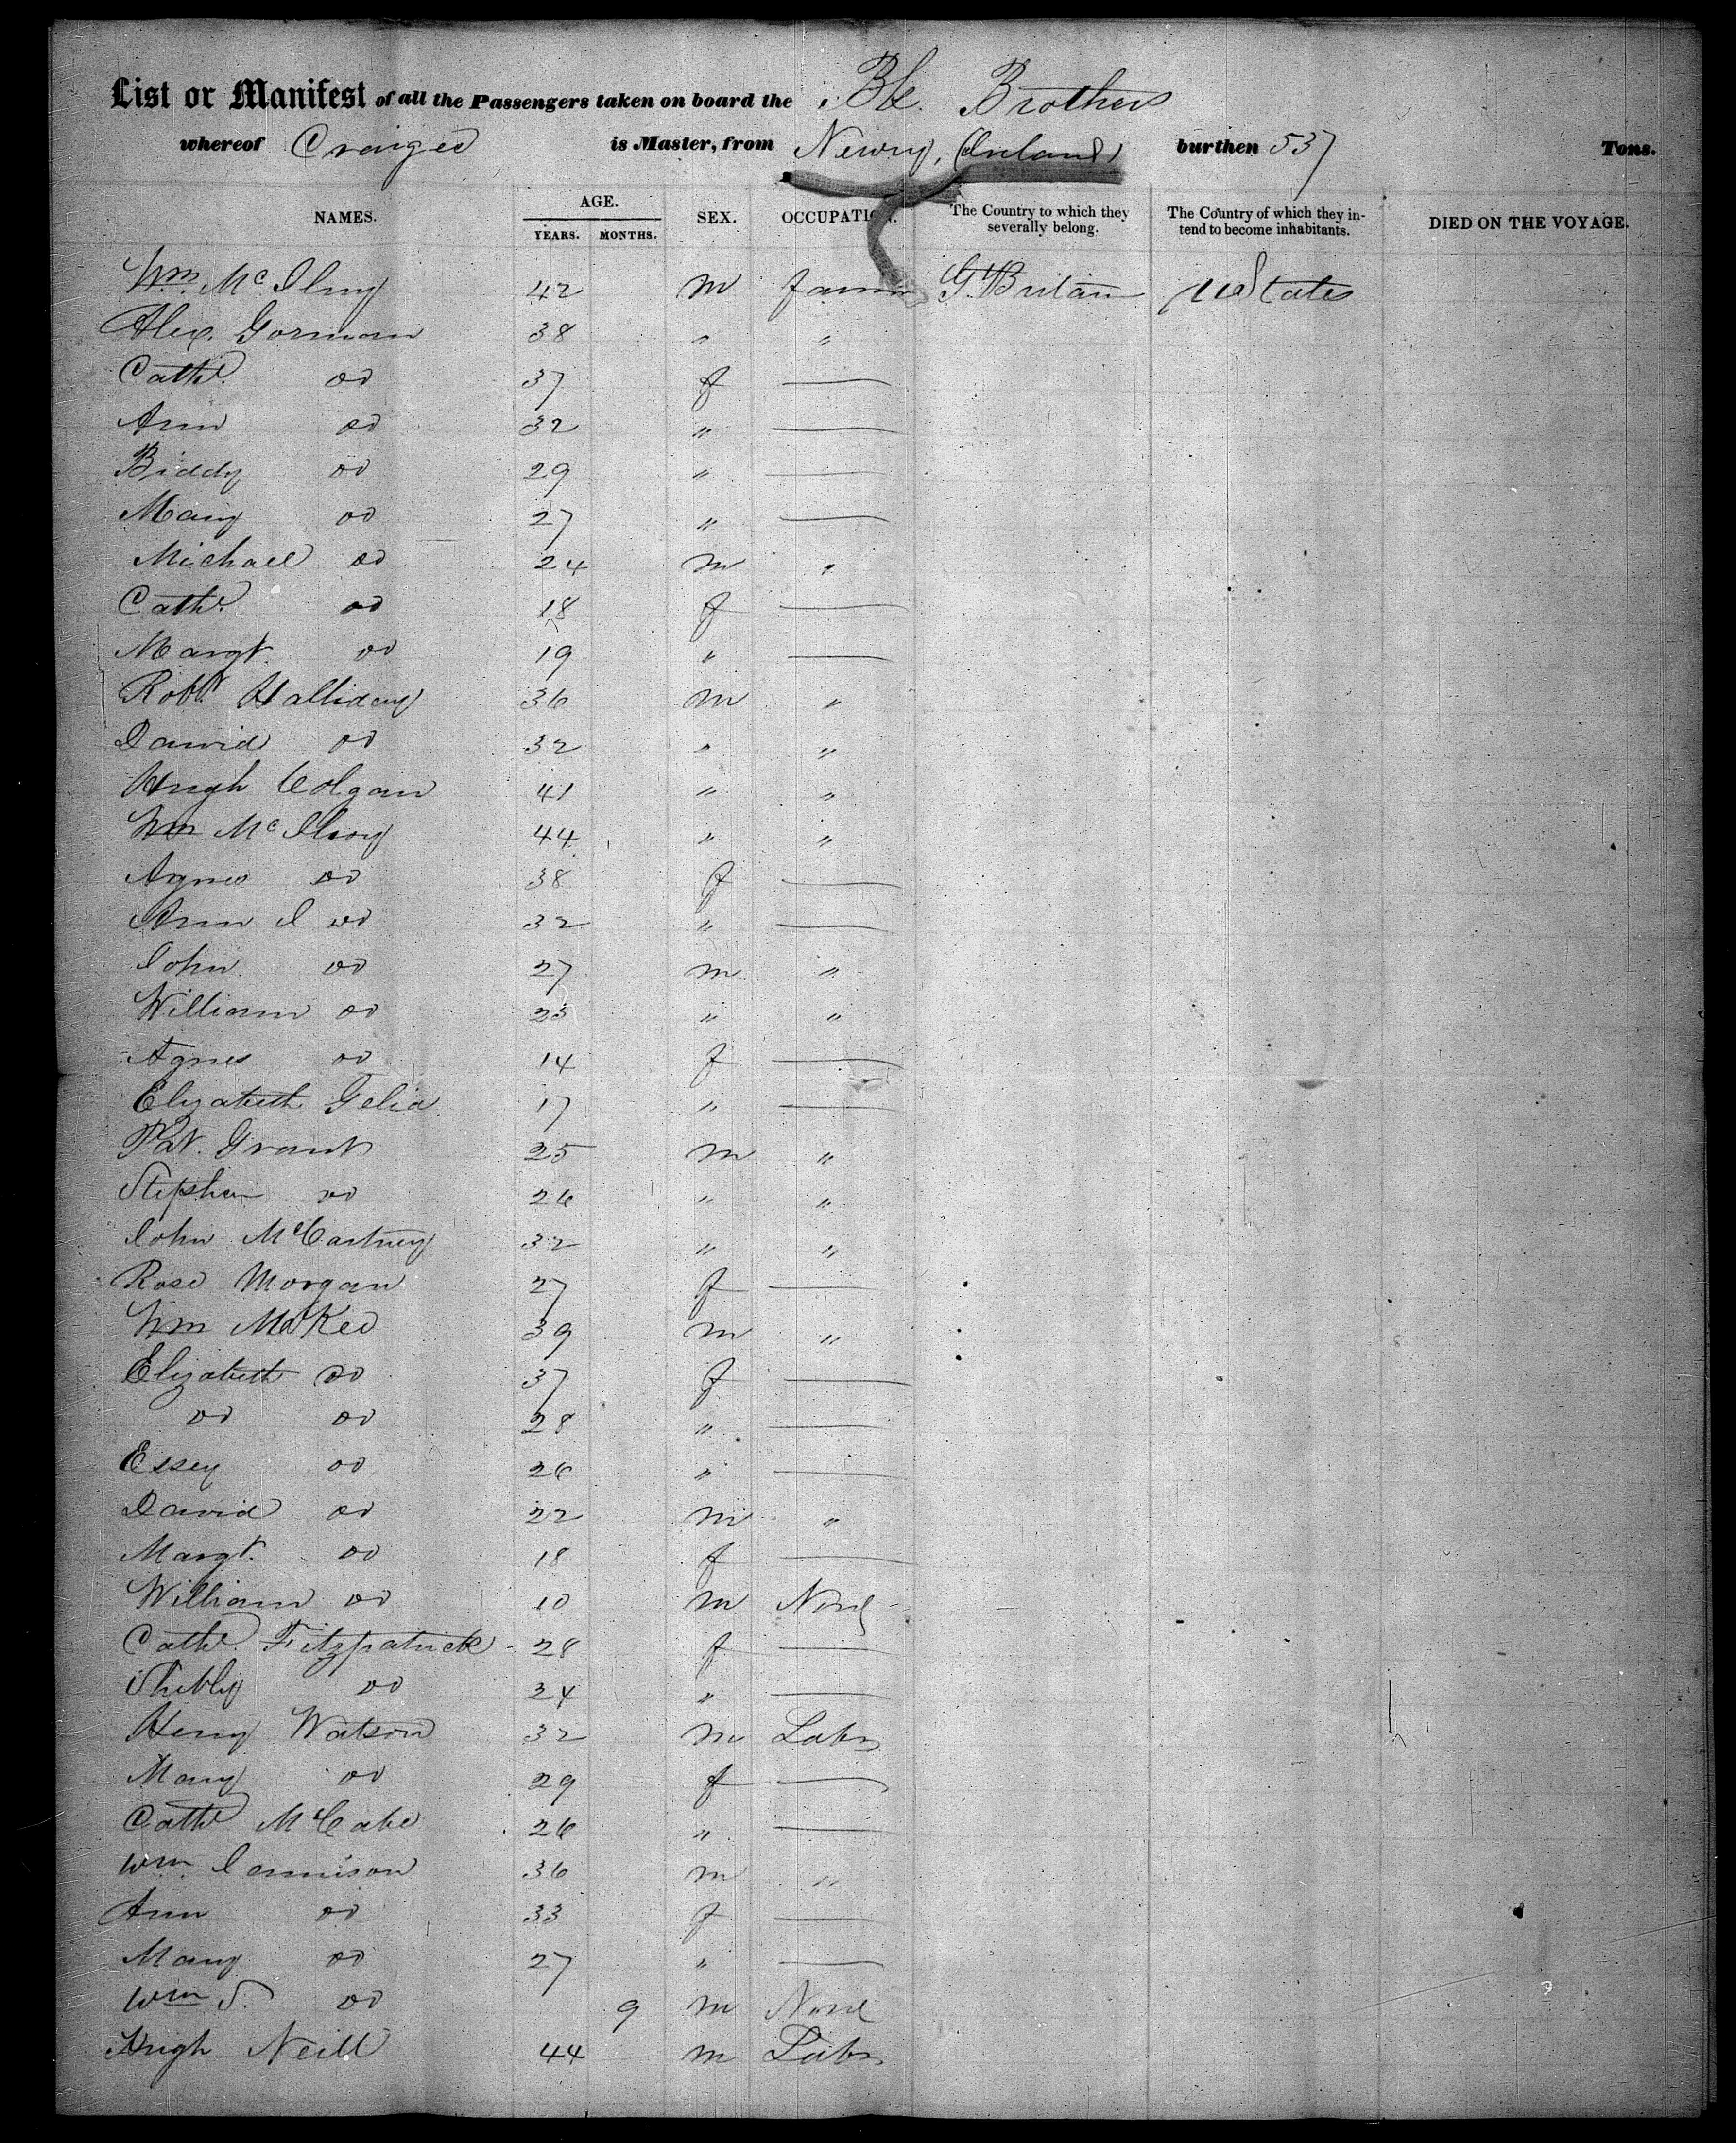 List or Manifest of all the Passengers taken on board the Bk. Brothers
whereof Craigee is Master, from Newry, (Ireland) burthen 537 Tons.
NAMES. AGE. YEARS. MONTHS. SEX. OCCUPATION. The Country to which they severally belong. The Country of which they intend to become inhabitants. DIED ON THE VOYAGE.
Wm McIlroy 42 m farmer G. Britain U States
Alex. Gorman 38 " "
Cathe. do 37 f —
Ann do 32 " —
Biddy do 29 " —
Mary do 27 " —
Michael do 24 m "
Cathe. do 18 f —
Margt. do 19 " —
Robt. Halliday 36 m "
David do 32 " "
Hugh Colgan 41 " "
Wm McIlroy 44 " "
Agnes do 38 f —
Ann J do 32 " —
John do 27 m "
William do 25 " "
Agnes do 14 f —
Elizabeth 17 " —
Pat. Grant 25 m "
Stephen do 26 " "
John McCartney 32 " "
Rose Morgan 27 f —
Wm McKee 39 m "
Elizabeth do 37 f —
do do 28 " —
Essey do 26 " —
David do 22 m "
Margt. do 18 f —
William do 10 m None
Cathe. Fitzpatrick 28 f —
do 24 " —
Henry Watson 32 m Labr
Mary do 29 f —
Cathe McCabe 26 " —
Wm. Jamison 36 m "
Ann do 33 f —
Mary do 27 " —
Wm S. do 9 m None
Hugh Neill 44 m Labr